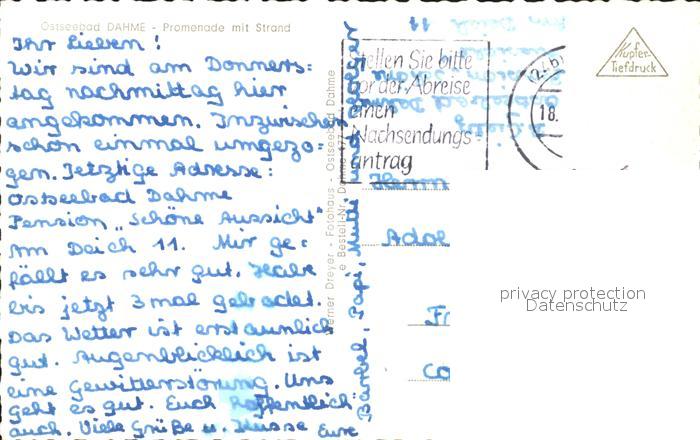 Ostseebad DAHME - Promenade mit Strand
Ihr Lieben!
Wir sind am Donners=
tag nachmittag hier
angekommen. Inzwischen
schon einmal umgezo=
gen. Jetztige Adresse:
Ostseebad Dahme
Pension „Schöne Aussicht"
Am Deich 11. Mir ge=
fällt es sehr gut. Habe
bis jetzt 3 mal gebadet.
Das Wetter ist erstaunlich
gut. Augenblicklich ist
eine Gewitterstörung. Uns
geht es gut. Euch hoffentlich
auch. Viele Grüße u. Küsse Eure
Bärbel, Papi, Mutti und
Werner Dreyer - Fotohaus - Ostseebad Dahme
Bestell-Nr.
Stellen Sie bitte
vor der Abreise
einen
Nachsendungs-
antrag
(24b)
18.
Kupfer-
Tiefdruck
11
Am Deich
Ostseebad Dahme
Adol
Fr
privacy protection
Datenschutz